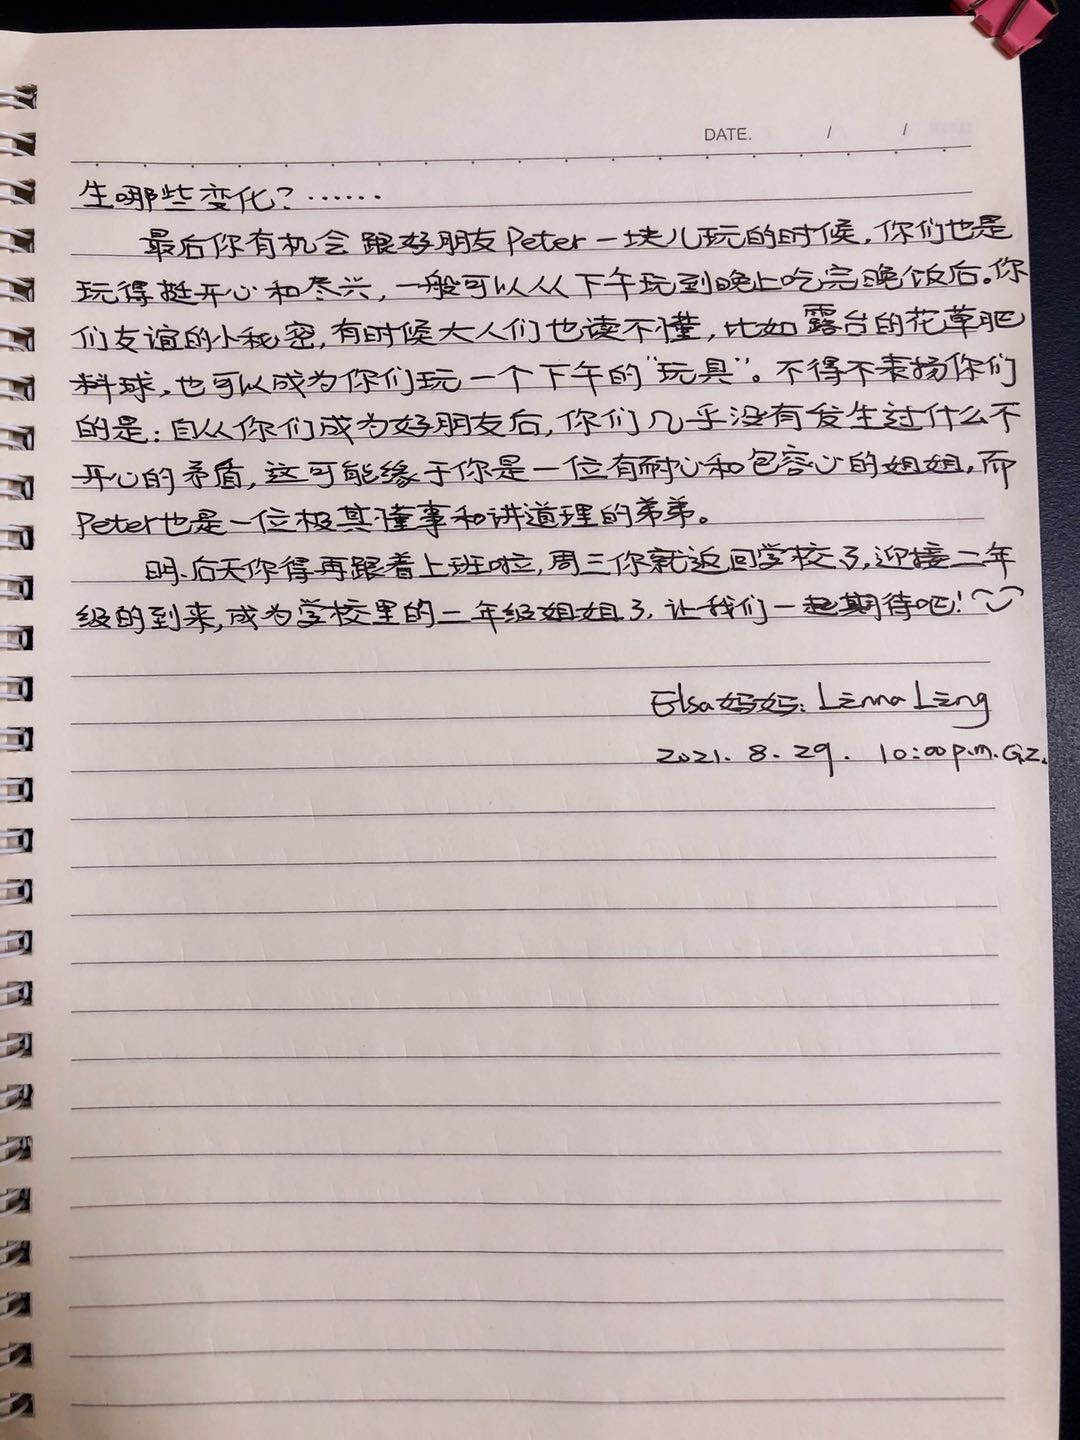 DATE. / /
生哪些变化？……
最后你有机会跟好朋友Peter一块儿玩的时候，你们也是
玩得挺开心和尽兴，一般可以从下午玩到晚上吃完晚饭后。你
们友谊的小秘密，有时候大人们也读不懂，比如露台的花草肥
料球，也可以成为你们玩一个下午的“玩具”。不得不表扬你们
的是：自从你们成为好朋友后，你们几乎没有发生过什么不
开心的矛盾，这可能缘于你是一位有耐心和包容心的姐姐，而
Peter也是一位极其懂事和讲道理的弟弟。
明、后天你得再跟着上班啦，周三你就返回学校了，迎接二年
级的到来，成为学校里的二年级姐姐了，让我们一起期待吧！
Elsa妈妈：Lenna Leng
2021. 8. 29. 10:00p.m. GZ.